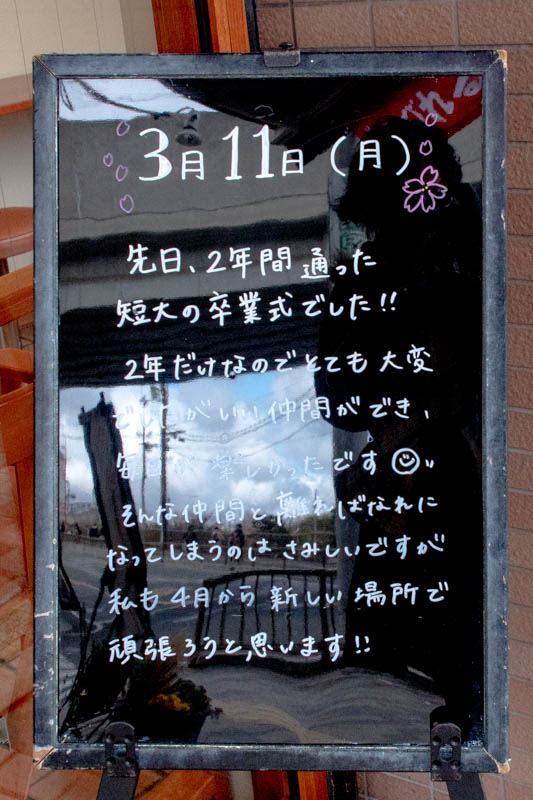 3月11日（月）
先日、2年間通った
短大の卒業式でした!!
2年だけなのでとても大変
でしたがいい仲間ができ、
毎日が楽しかったです
そんな仲間と離ればなれに
なってしまうのはさみしいですが
私も4月から新しい場所で
頑張ろうと思います!!